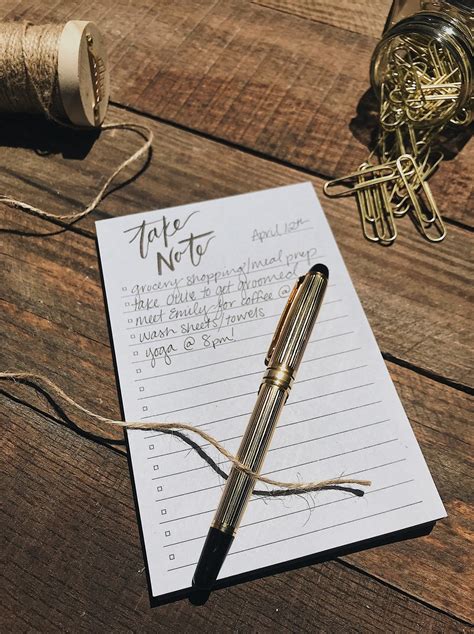 take
Note
April 12th
grocery shopping/meal prep
take Ollie to get groomed
meet Emily for coffee @
wash sheets/towels
yoga @ 8pm!